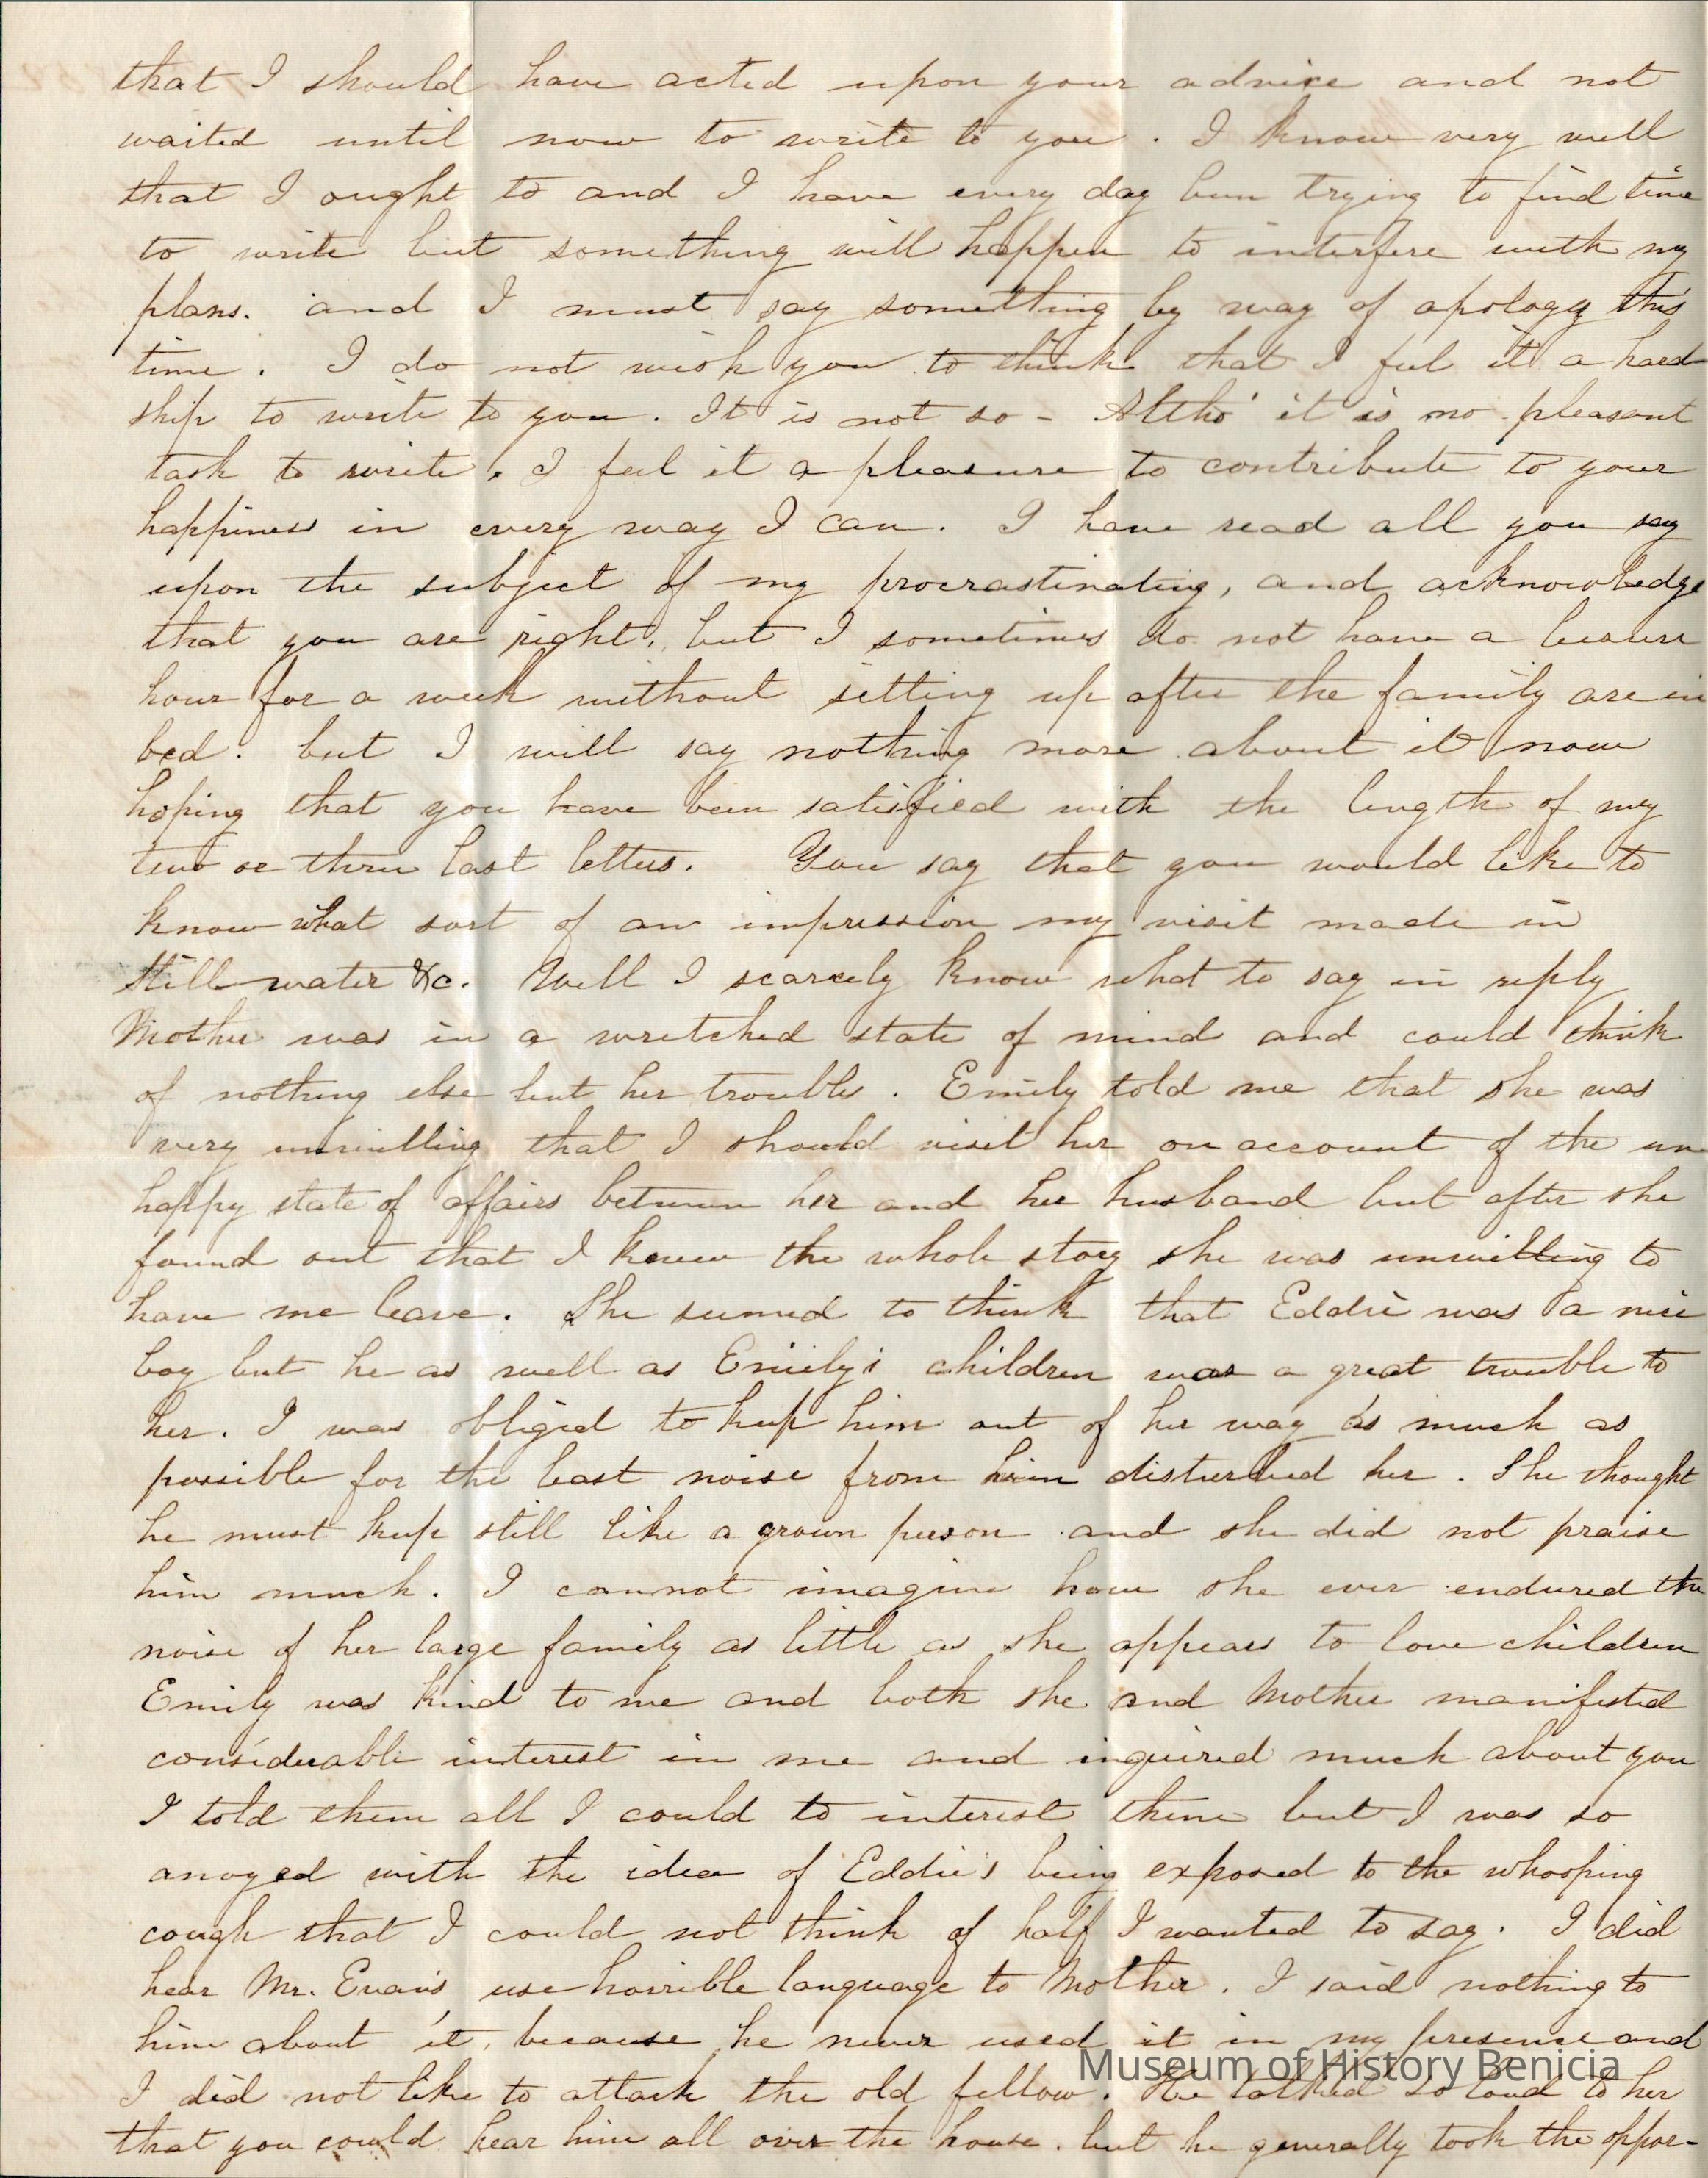 that I should have acted upon your advice and not
waited until now to write to you. I know very well
that I ought to and I have every day been trying to find time
to write but something will happen to interfere with my
plans. and I must say something by way of apology this
time. I do not wish you to think that I feel it a hard
ship to write to you. It is not so - Altho' it is no pleasant
task to write, I feel it a pleasure to contribute to your
happiness in every way I can. I have read all you say
upon the subject of my procrastinating, and acknowledge
that you are right, but I sometimes do not have a leasure
hour for a week without setting up after the family are in
bed. but I will say nothing more about it now
hoping that you have been satisfied with the length of my
two or three last letters. You say that you would like to
know what sort of an impression my visit made in
Still water &c. Well I scarcely know what to say in reply
Mother was in a wretched state of mind and could think
of nothing else but her troubles. Emily told me that she was
very unwilling that I should visit her on account of the un
happy state of affairs between her and her husband but after she
found out that I knew the whole story she was unwilling to
have me leave. She seemed to think that Eddie was a nice
boy but he as well as Emily's children was a great trouble to
her. I was obliged to keep him out of her way as much as
possible for the least noise from him disturbed her. She thought
he must keep still like a grown person and she did not praise
him much. I cannot imagine how she ever endured the
noise of her large family as little as she appears to love children
Emily was kind to me and both she and Mother manifested
considerable interest in me and inquired much about you
I told them all I could to interest them but I was so
anoyed with the idea of Eddie's being exposed to the whooping
cough that I could not think of half I wanted to say. I did
hear Mr. Evans use horrible language to Mother. I said nothing to
him about it, because he never used it in my presence and
I did not like to attack the old fellow. He talked so loud to her
that you could hear him all over the house. but he generally took the oppor-
Museum of History Benicia